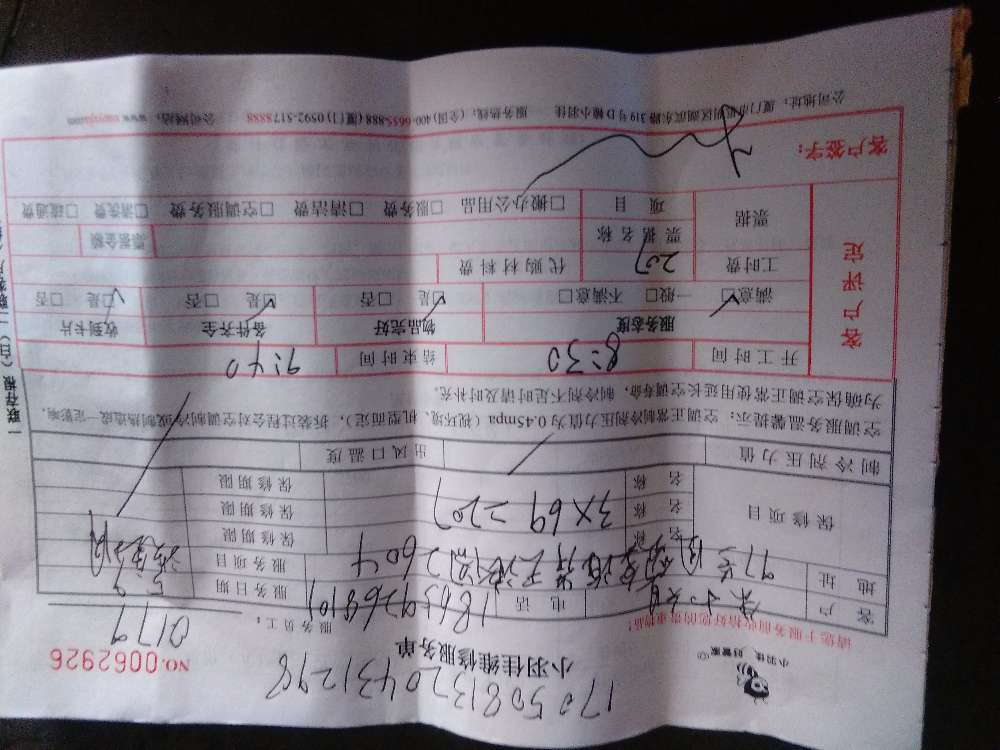 170508137204431298
小羽佳 好管家
小羽佳维修服务单
NO.0062926
请您于服务前收拾好您的贵重物品！
服务员工：0179
客户
电话 18659268101
服务日期 5.9
地址
604
服务项目
保修项目
名称
保修期限
名称 3×69=207
保修期限
名称
保修期限
制冷剂压力值
出风口温度
空调服务温馨提示：空调正常制冷剂压力值为0.45mpa（视环境、机型而定），拆装过程会对空调制冷或制热造成一定影响，
为确保空调正常使用延长空调寿命，制冷剂不足时请及时补充。
客户评定
开工时间 8:30 结束时间 9:40
服务态度 物品完好 备件齐全 收到卡片
满意□ 一般□ 不满意□ 是□ 否□ 是□ 否□ 是□ 否□
工时费 207 代购材料费
票据 票据名称 票据金额
项目 □搬办公用品 □服务费 □清洁费 □空调服务费 □清洗费 □疏通费
客户签字：
公司地址：厦门市思明区湖滨东路319号D幢小羽佳 服务热线：(全国)400-0655-888 (厦门)0592-5178888 公司网站：
一联存根（白）